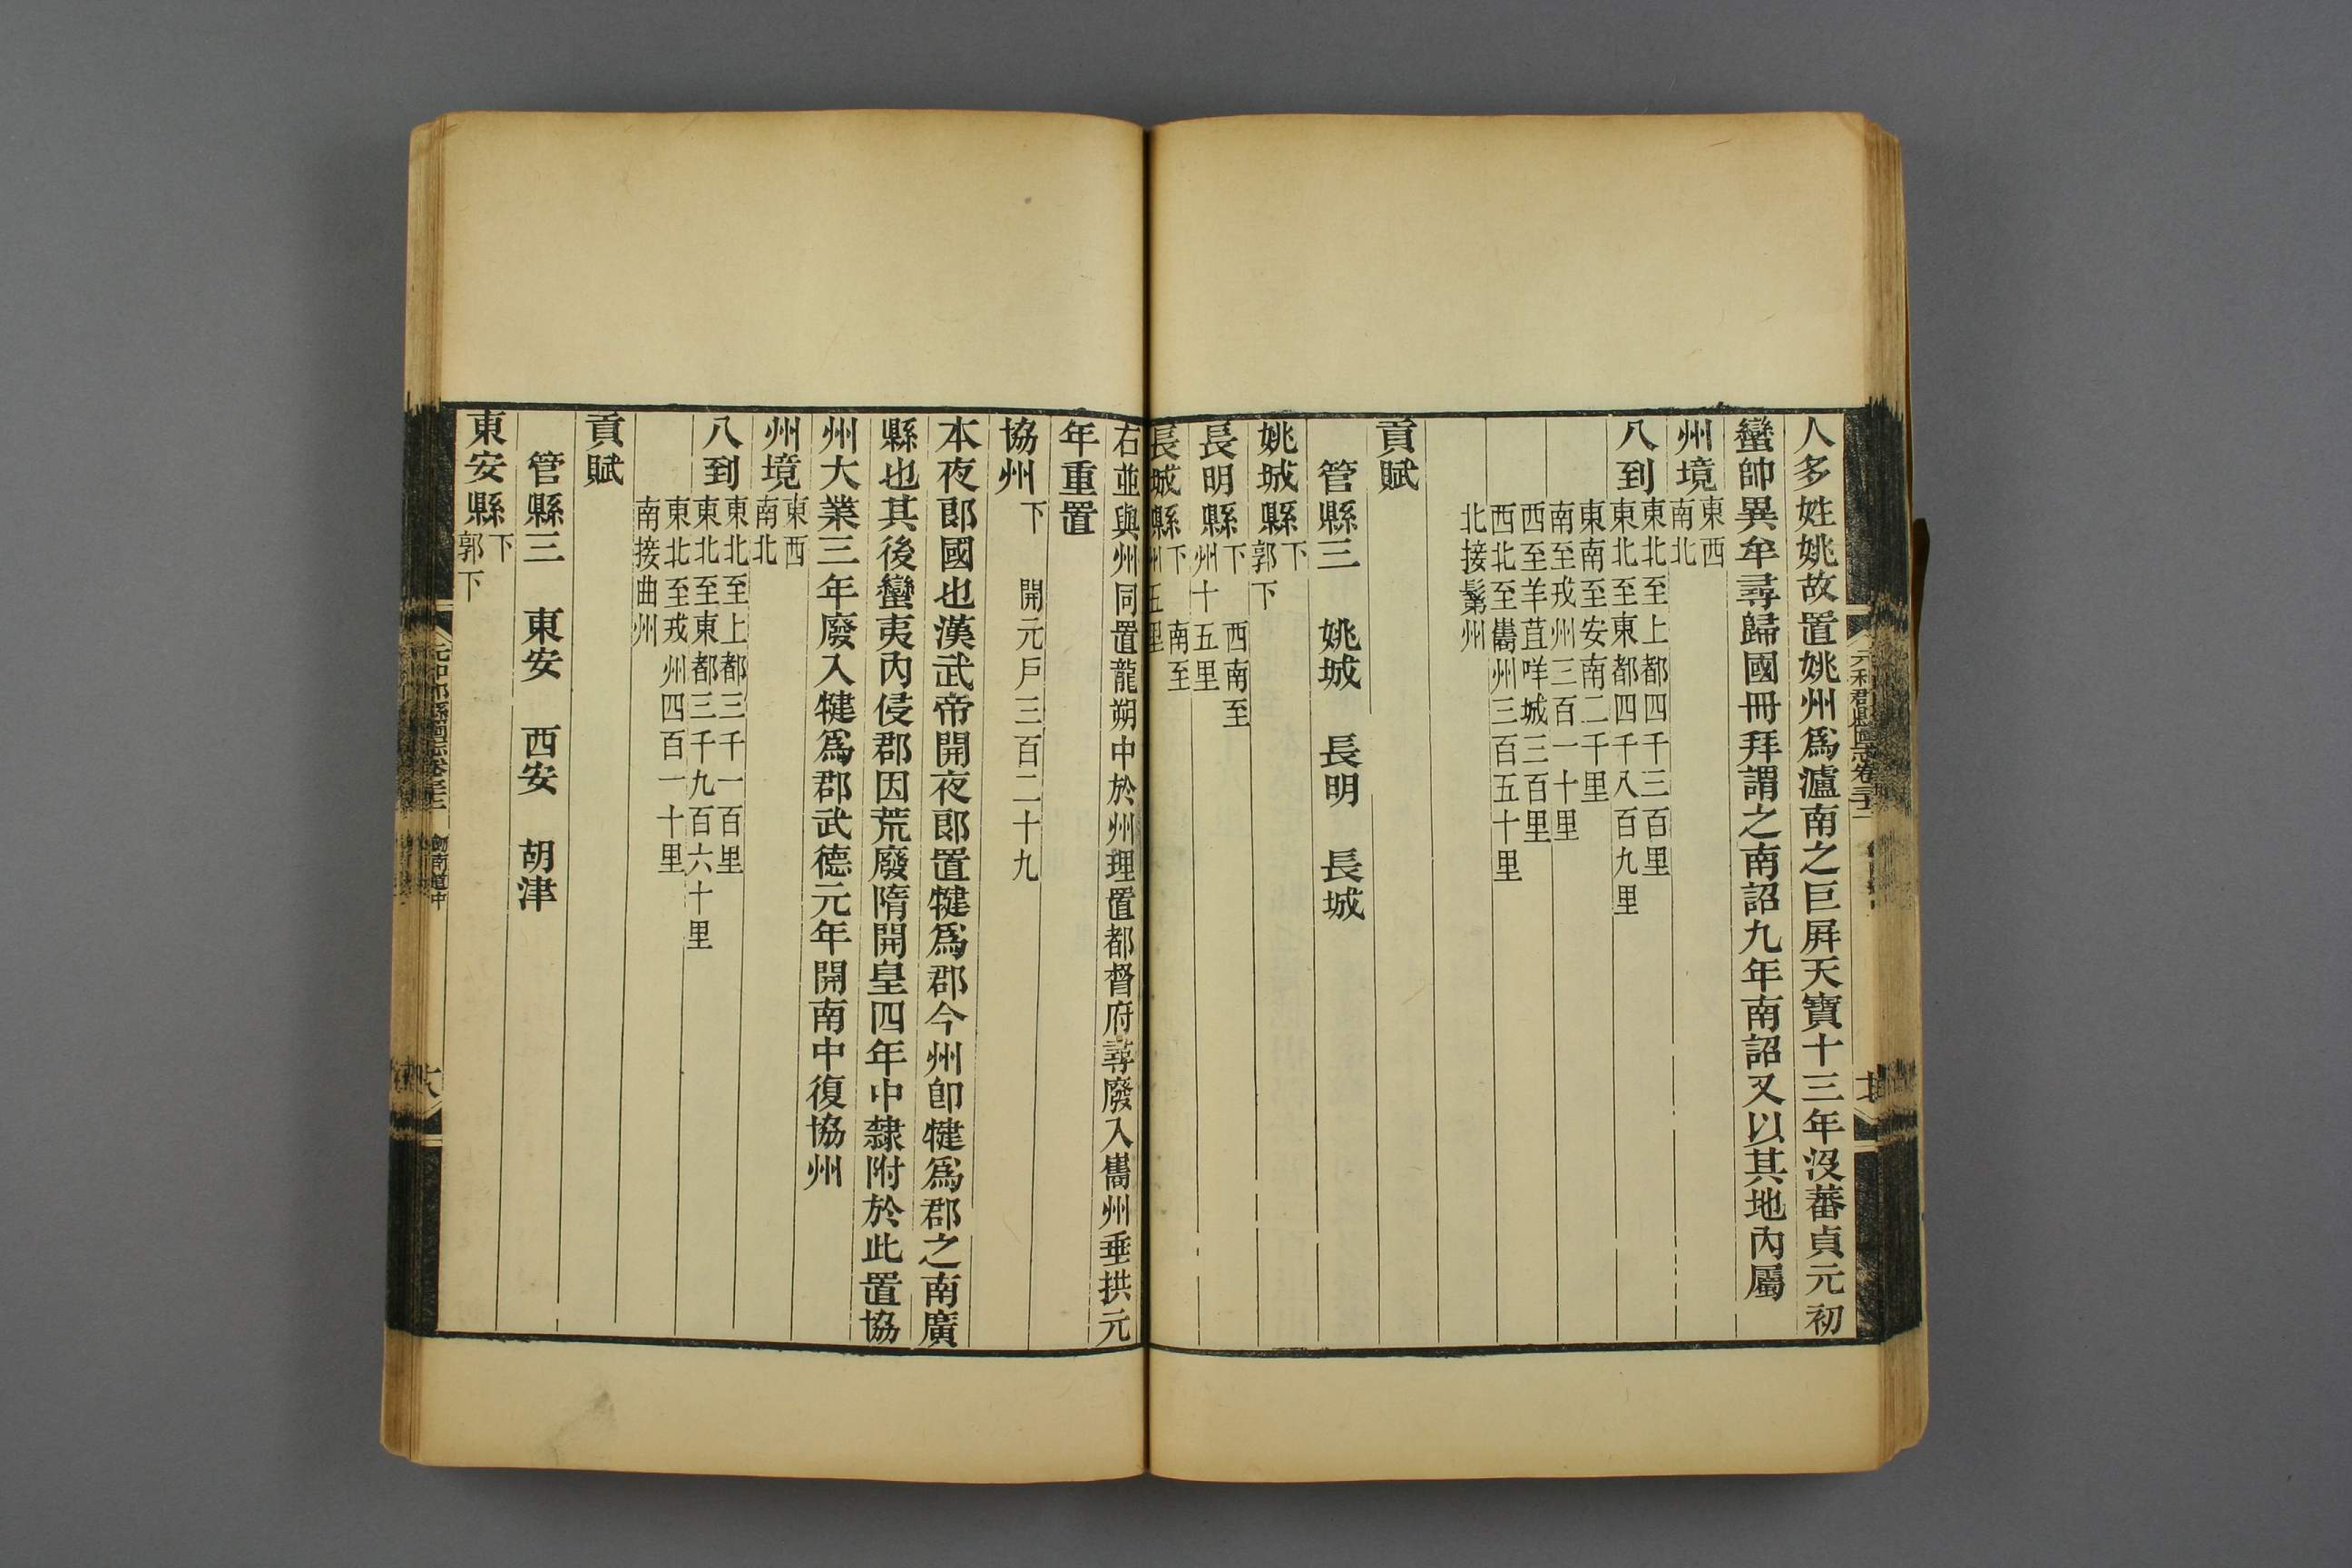 人多姓姚故置姚州爲瀘南之巨屛天寶十三年沒蕃貞元初
蠻帥異牟尋歸國冊拜謂之南詔九年南詔又以其地內屬
州境東西
南北
八到東北至上都四千三百里
東北至東都四千八百九里
東南至安南二千里
南至戎州三百一十里
西至羊苴咩城三百里
西北至巂州三百五十里
北接髳州
貢賦
管縣三 姚城 長明 長城
姚城縣下
郭下
長明縣下 西南至
州十五里
長城縣下 南至
州五里
右並與州同置龍朔中於州理置都督府尋廢入巂州垂拱元
年重置
協州下 開元戶三百二十九
本夜郎國也漢武帝開夜郎置犍爲郡今州卽犍爲郡之南廣
縣也其後蠻夷內侵郡因荒廢隋開皇四年中隸附於此置協
州大業三年廢入犍爲郡武德元年開南中復協州
州境東西
南北
八到東北至上都三千一百里
東北至東都三千九百六十里
東北至戎州四百一十里
南接曲州
貢賦
管縣三 東安 西安 胡津
東安縣下
郭下